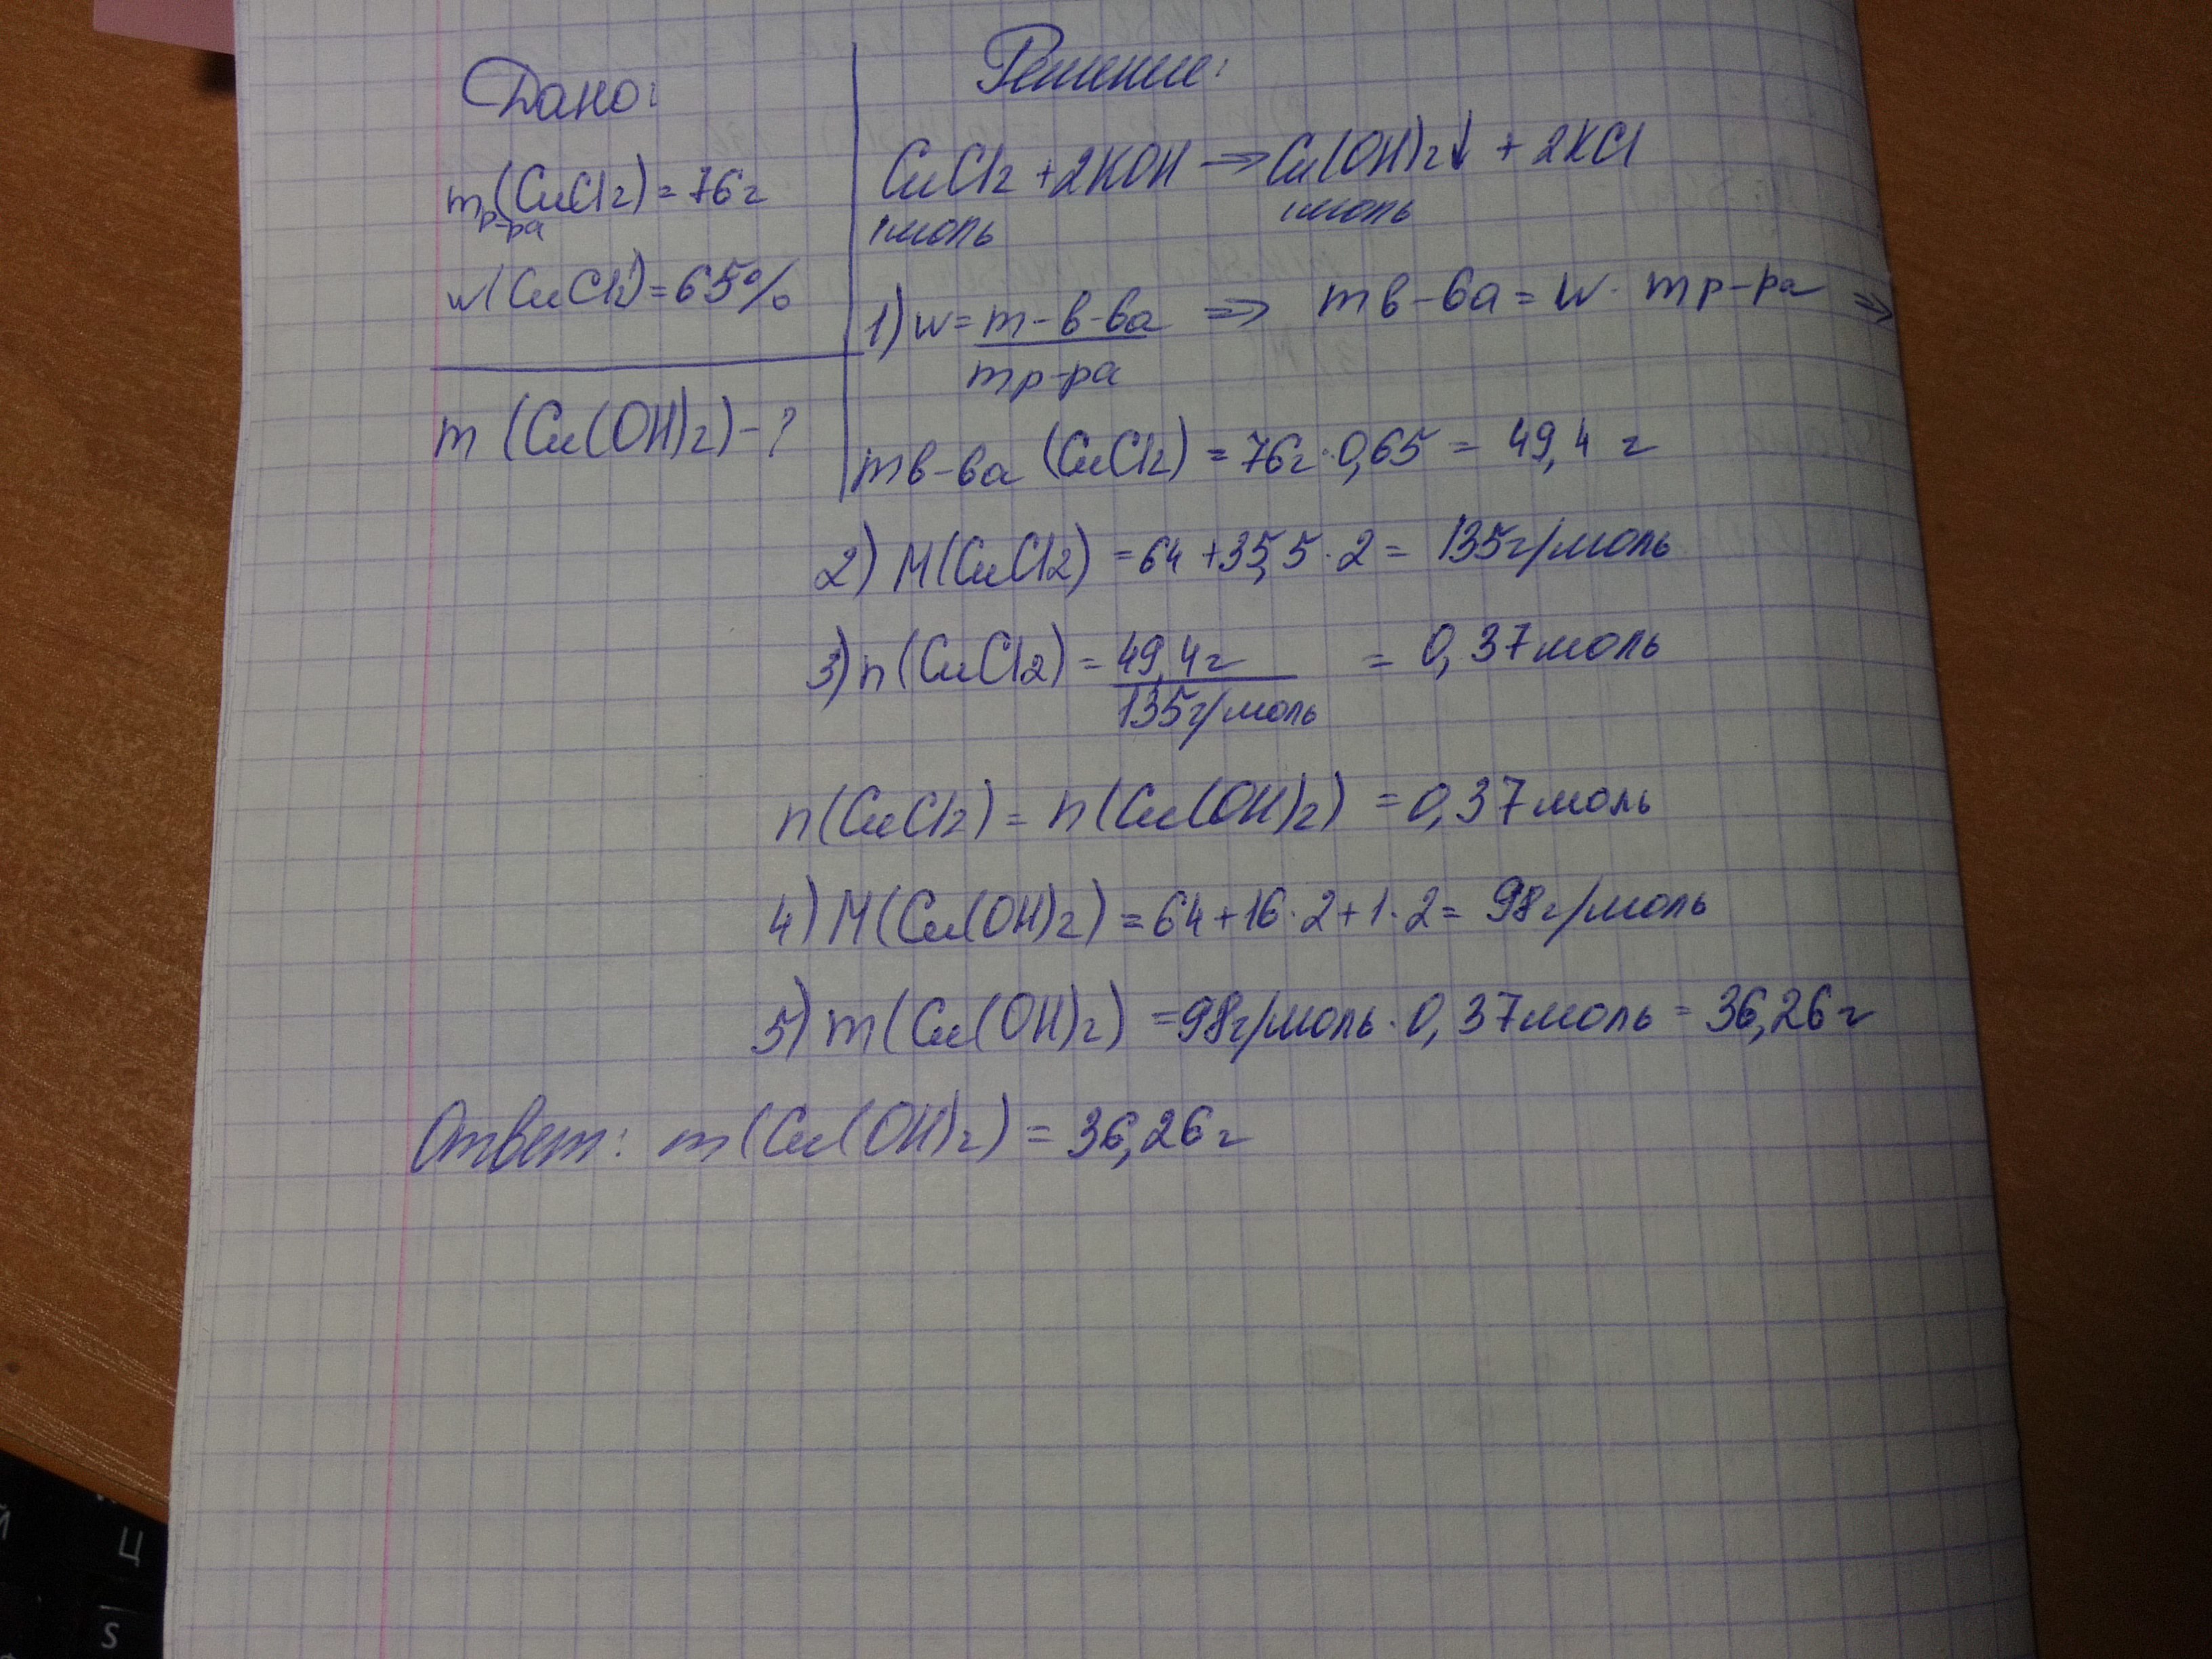 Дано:
mр-ра(CuCl2) = 76 г
w(CuCl2) = 65%
m (Cu(OH)2) - ?
Решение:
CuCl2 + 2KOH → Cu(OH)2↓ + 2KCl
1моль 1моль
1) w = m-в-ва / mр-ра ⇒ mв-ва = w · mр-ра ⇒
mв-ва (CuCl2) = 76г · 0,65 = 49,4 г
2) M(CuCl2) = 64 + 35,5 · 2 = 135г/моль
3) n(CuCl2) = 49,4г / 135г/моль = 0,37моль
n(CuCl2) = n(Cu(OH)2) = 0,37моль
4) M(Cu(OH)2) = 64 + 16 · 2 + 1 · 2 = 98г/моль
5) m(Cu(OH)2) = 98г/моль · 0,37моль = 36,26г
Ответ: m(Cu(OH)2) = 36,26г
Ц
S